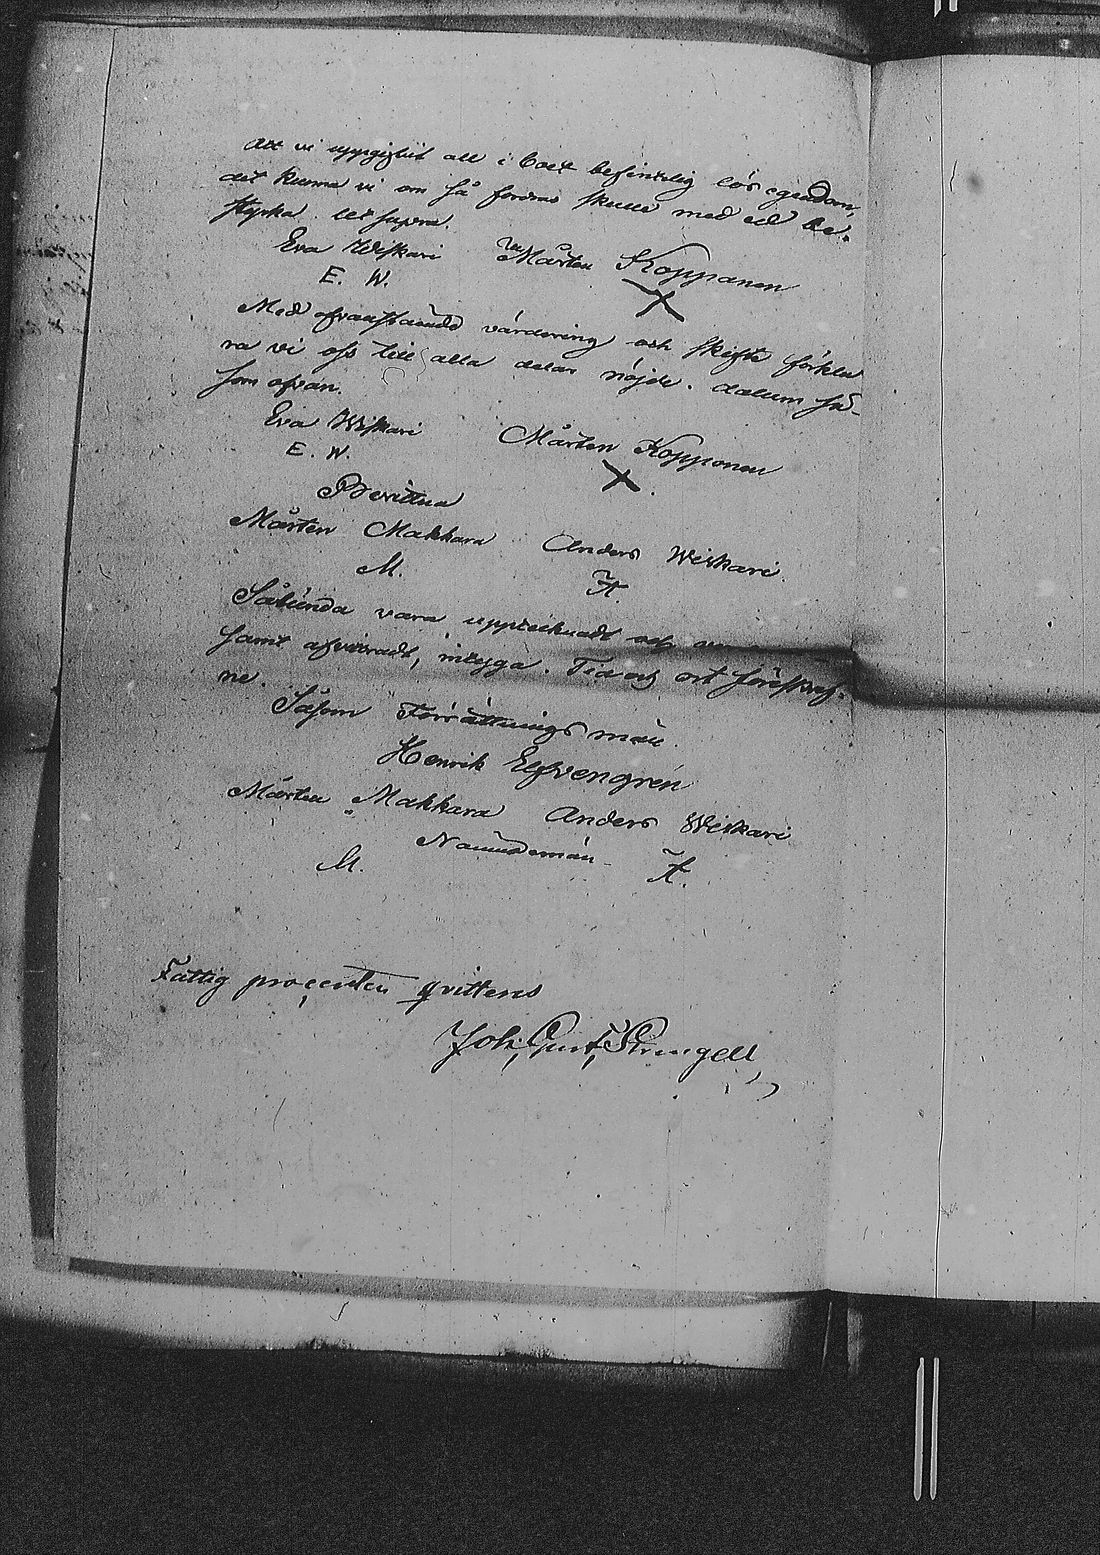 Att vi uppgifvit all i boet befintelig lös egendom,
det kunna vi om så fordras skulle med ed be-
styrka. Ut supra.
Eva Wiskari Mårten Kopponen
E. W. X
Med ofvanstående värdering och skifte förkla
ra vi oss till alla delar nöjde. datum så-
som ofvan.
Eva Wiskari Mårten Kopponen
E. W. X
Bevittna
Mårten Makkara Anders Wiskari
M. A.
Sålunda vara upptecknadt och
samt afvitradt, intyga. Tid och ort föreskref-
ne.
Såsom Förrättningsmän
Henrik Elfvengren
Mårten Makkara Anders Wiskari
Nämndemän
M. A.
Fattig procenten qvitteras
Joh. Gust. Strengell